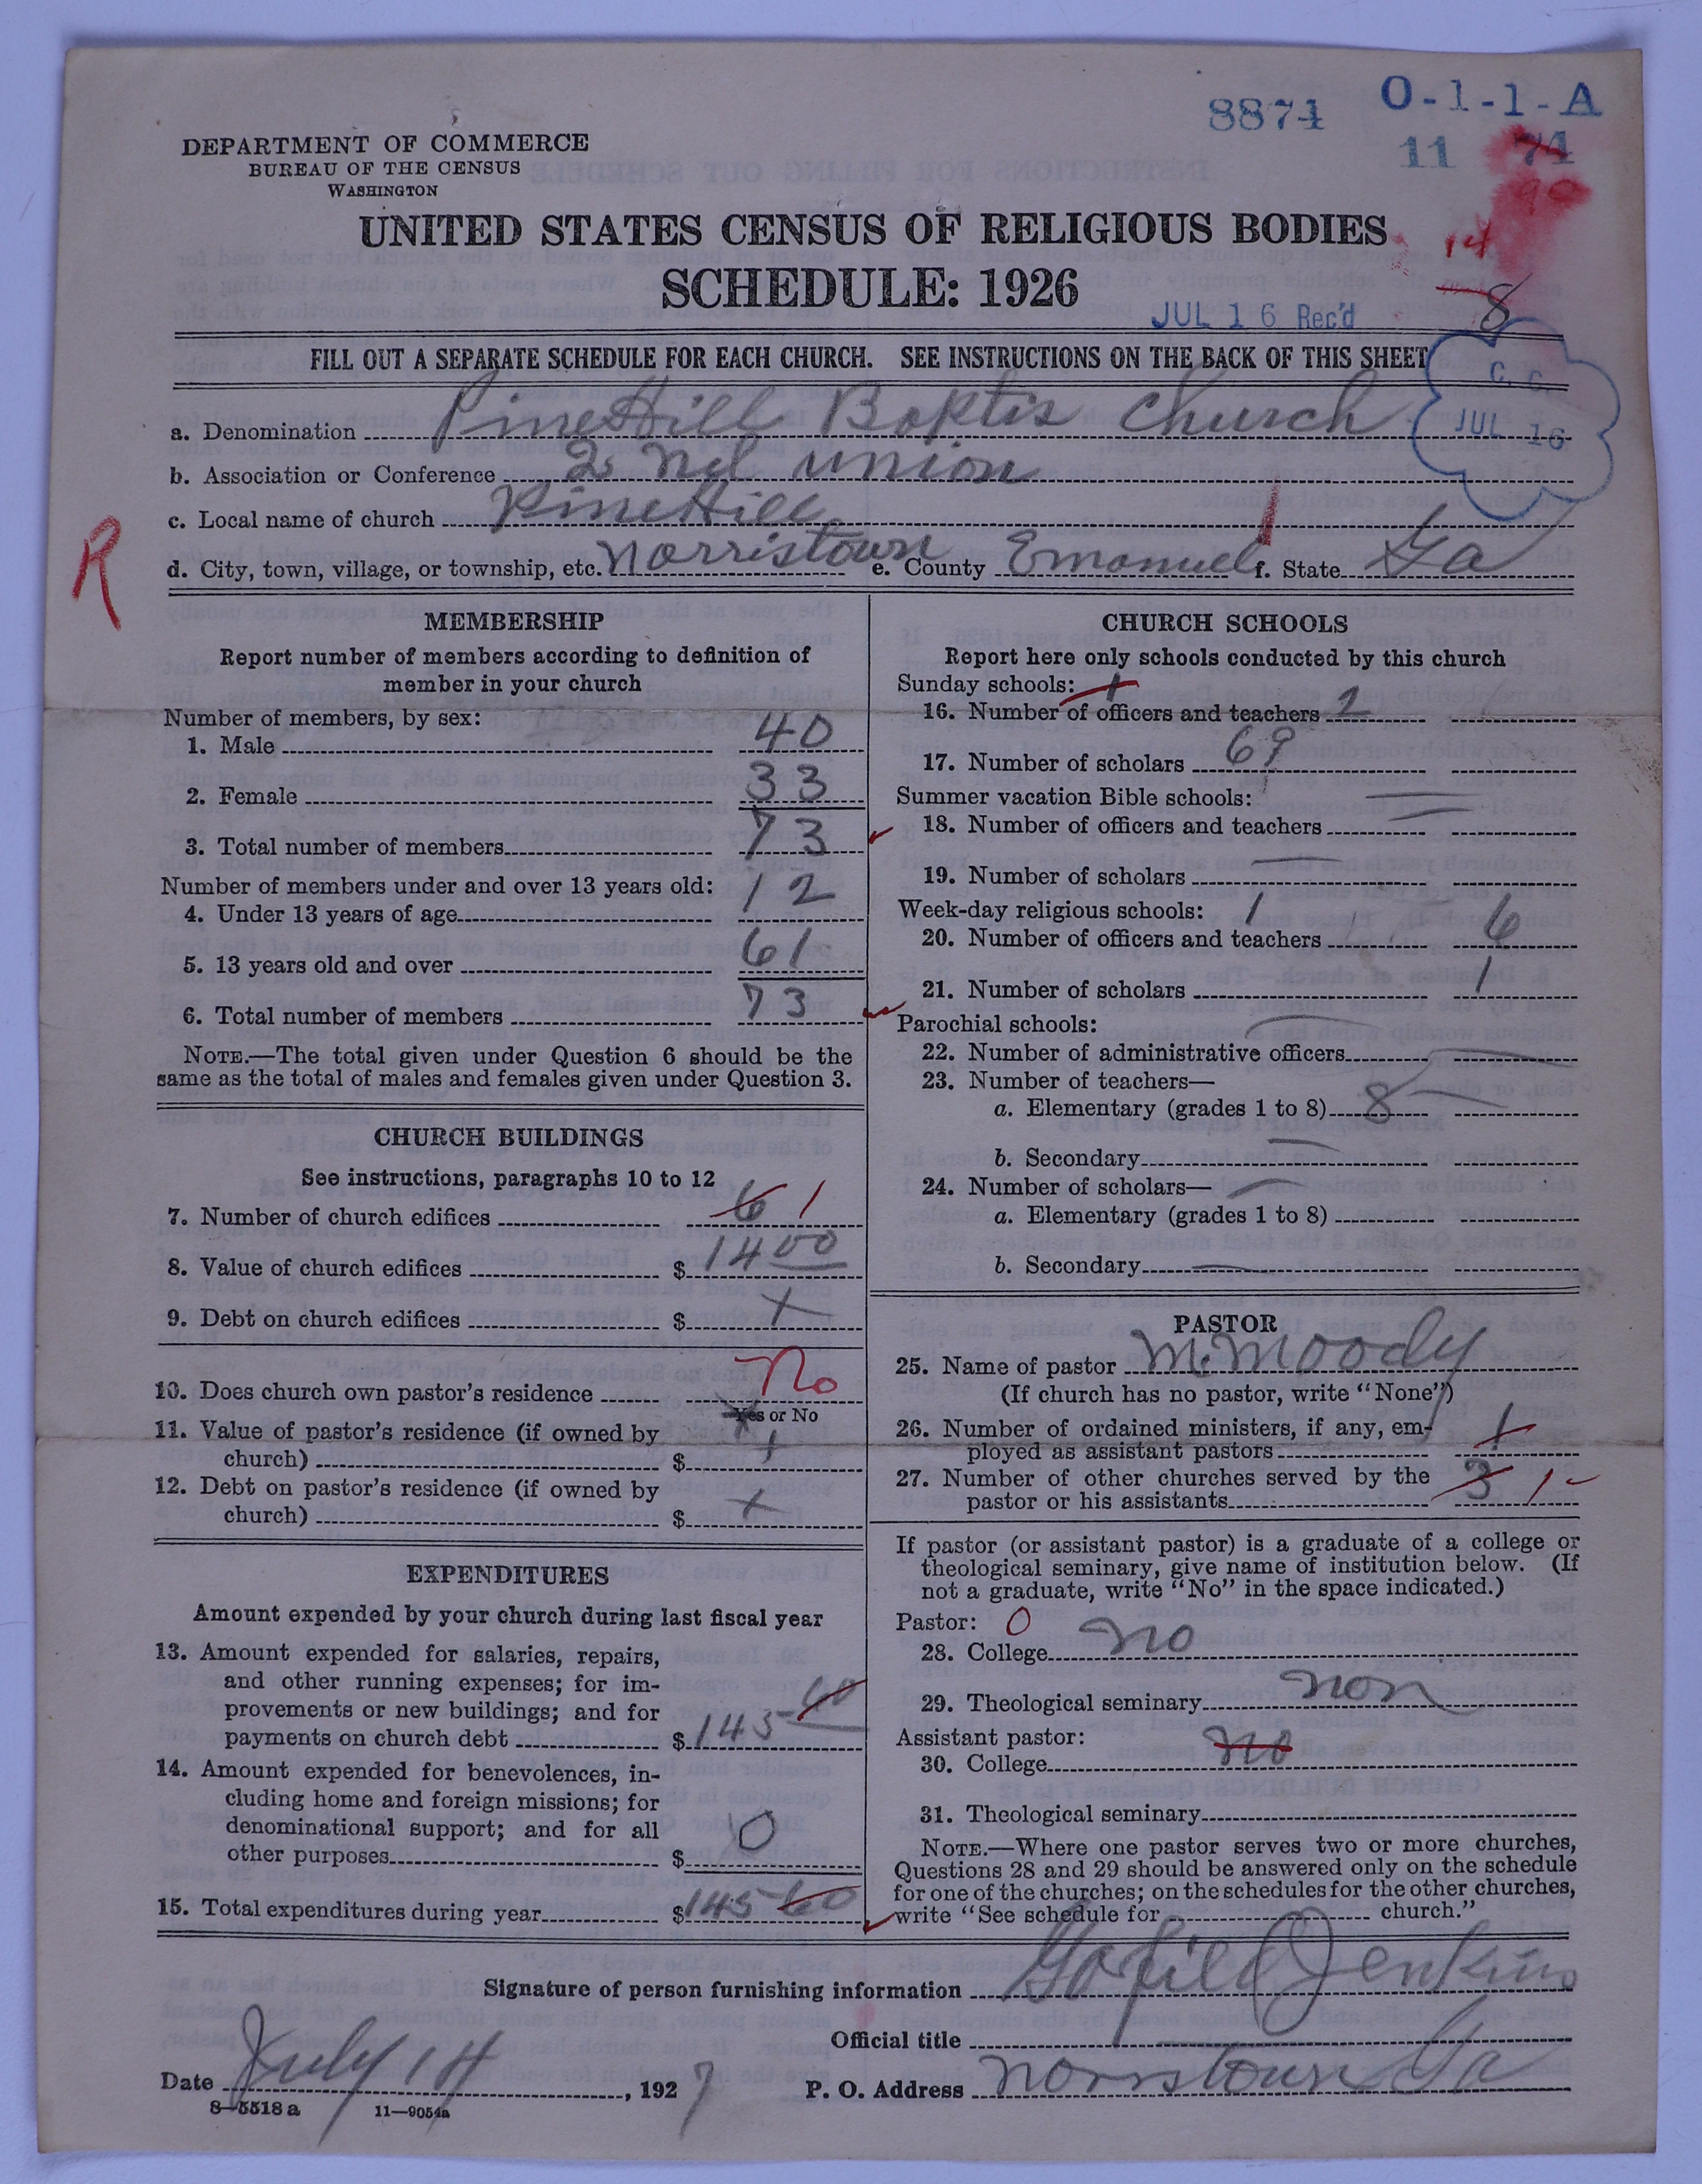 8874 O-1-1-A
11 74
90
DEPARTMENT OF COMMERCE
BUREAU OF THE CENSUS
WASHINGTON
UNITED STATES CENSUS OF RELIGIOUS BODIES
14
SCHEDULE: 1926
JUL 16 Rec'd
8
FILL OUT A SEPARATE SCHEDULE FOR EACH CHURCH. SEE INSTRUCTIONS ON THE BACK OF THIS SHEET
C. C.
JUL 16
a. Denomination PineHill Baptis Church
b. Association or Conference 2 nd union
c. Local name of church PineHill
R
d. City, town, village, or township, etc. Norristown e. County Emanuel f. State Ga
MEMBERSHIP
Report number of members according to definition of
member in your church
Number of members, by sex:
1. Male 40
2. Female 33
3. Total number of members 73
Number of members under and over 13 years old:
4. Under 13 years of age 12
5. 13 years old and over 61
6. Total number of members 73
NOTE.—The total given under Question 6 should be the
same as the total of males and females given under Question 3.
CHURCH BUILDINGS
See instructions, paragraphs 10 to 12
7. Number of church edifices 6 1
8. Value of church edifices $ 1400
9. Debt on church edifices $ +
10. Does church own pastor's residence No
Yes or No
11. Value of pastor's residence (if owned by
church) $ +
12. Debt on pastor's residence (if owned by
church) $ +
EXPENDITURES
Amount expended by your church during last fiscal year
13. Amount expended for salaries, repairs,
and other running expenses; for im-
provements or new buildings; and for
payments on church debt $ 145 60
14. Amount expended for benevolences, in-
cluding home and foreign missions; for
denominational support; and for all
other purposes $ 10
15. Total expenditures during year $ 145 60
CHURCH SCHOOLS
Report here only schools conducted by this church
Sunday schools: 1
16. Number of officers and teachers 2
17. Number of scholars 69
Summer vacation Bible schools:
18. Number of officers and teachers
19. Number of scholars
Week-day religious schools: 1
20. Number of officers and teachers 6
21. Number of scholars 1
Parochial schools:
22. Number of administrative officers
23. Number of teachers—
a. Elementary (grades 1 to 8) 8
b. Secondary
24. Number of scholars—
a. Elementary (grades 1 to 8)
b. Secondary
PASTOR
25. Name of pastor M. Moody
(If church has no pastor, write "None")
26. Number of ordained ministers, if any, em-
ployed as assistant pastors 1
27. Number of other churches served by the
pastor or his assistants 3 1
If pastor (or assistant pastor) is a graduate of a college or
theological seminary, give name of institution below. (If
not a graduate, write "No" in the space indicated.)
Pastor: 0
28. College no
29. Theological seminary non
Assistant pastor:
30. College no
31. Theological seminary
NOTE.—Where one pastor serves two or more churches,
Questions 28 and 29 should be answered only on the schedule
for one of the churches; on the schedules for the other churches,
write "See schedule for church."
Signature of person furnishing information Jenkins
Official title
Date July 14, 1927 P. O. Address Norristown Ga
8—5518a 11—9054a